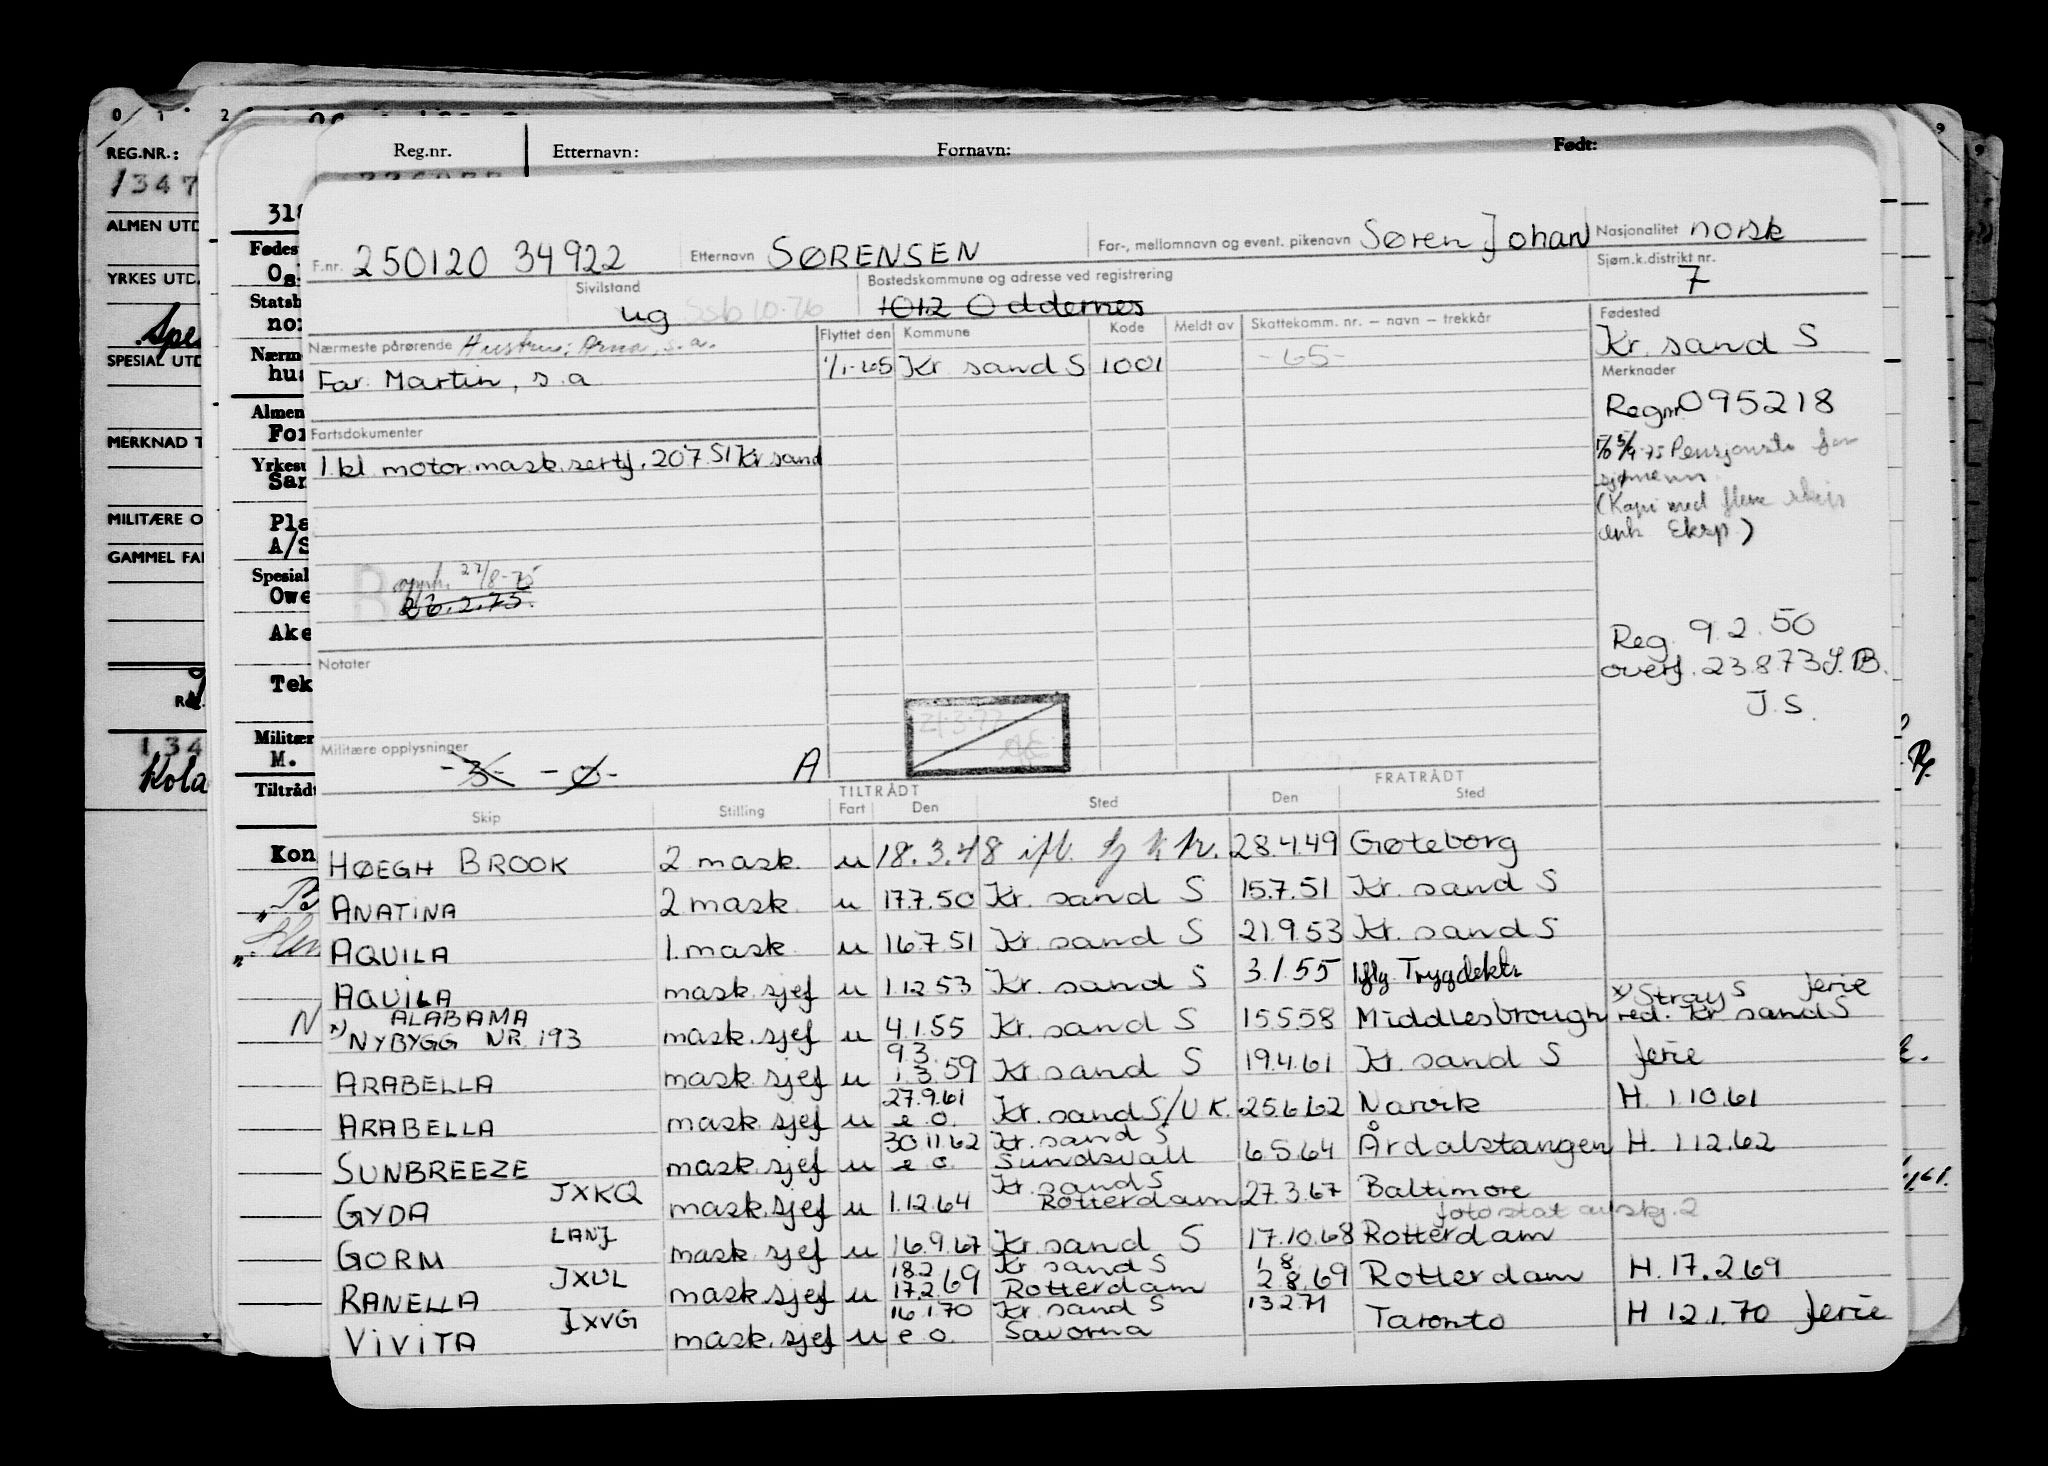 0 1 2 9
REG.NR.:
1347
ALMEN UTD
YRKES UTD.
Spe
SPESIAL UTD
MERKNAD T
MILITÆRE O
GAMMEL FAR
134
Kola
318
Fødes
Os
Statsb
nor
Nærm
hus
Almen
For
Yrkesu
San
Pla
A/S
Spesial
Owe
Ake
Tek
Militær
M.
Tiltrådt
Kon
Reg.nr. Etternavn: Fornavn: Født:
F.nr. 250120 34922 Etternavn SØRENSEN For-, mellomnavn og event. pikenavn Søren Johan Nasjonalitet norsk
Sivilstand ug Ssb 10-76 Bostedskommune og adresse ved registrering 1012 Oddernes Sjøm.k.distrikt nr. 7
Nærmeste pårørende Hustru: Arna, s.a. Flyttet den Kommune Kode Meldt av Skattekomm. nr. – navn – trekkår Fødested
Far: Martin, s.a 1/1-65 Kr. sand S 1001 -65- Kr. sand S
Merknader
Regnr 095218
Fartsdokumenter
1.kl. motor.mask.sertf. 20.7.51 Kr sand
5/9-75 Pensjonstr for
sjømenn
(Kopi med flere skip
ank Eksp.)
B opph. 27/8-75
26.2.75.
Reg. 9.2.50
overf. 23.8.73 S.B.
J.S.
Notater
21.3.77
Militære opplysninger -3- -Ø- A
TILTRÅDT FRATRÅDT
Skip Stilling Fart Den Sted Den Sted
HØEGH BROOK 2 mask. u 18.3.48 ifl. 28.4.49 Gøteborg
ANATINA 2 mask. u 17.7.50 Kr. sand S 15.7.51 Kr. sand S
AQUILA 1. mask u 16.7.51 Kr. sand S 21.9.53 Kr. sand S
AQUILA mask.sjef u 1.12.53 Kr. sand S 3.1.55 iflg Trygdektr
ALABAMA x) Strays ferie
x) NYBYGG NR. 193 mask.sjef u 4.1.55 Kr. sand S 15.5.58 Middlesbrough red. Kr sand S
9.3.
ARABELLA mask.sjef u 1.3.59 Kr sand S 19.4.61 Kr. sand S ferie
27.9.61
ARABELLA mask.sjef u e.o. Kr. sand S/U K. 25.6.62 Narvik H. 1.10.61
30.11.62 Kr. sand S
SUNBREEZE mask.sjef u e.o. Sundsvall 6.5.64 Årdalstangen H. 1.12.62
JXKQ Kr. sand S
GYDA mask.sjef u 1.12.64 Rotterdam 27.3.67 Baltimore
fotostat avskj. 2
LANJ
GORM mask.sjef u 16.9.67 Kr. sand S 17.10.68 Rotterdam
JXUL 18.2 Kr sand S 1 8
RANELLA mask.sjef u 17.2.69 Rotterdam 2.8.69 Rotterdam H. 17.2.69
JXVG 16.1.70 Kr. sand S 13.2.71
VIVITA mask.sjef u e.o. Savona Taronto H 12.1.70 ferie